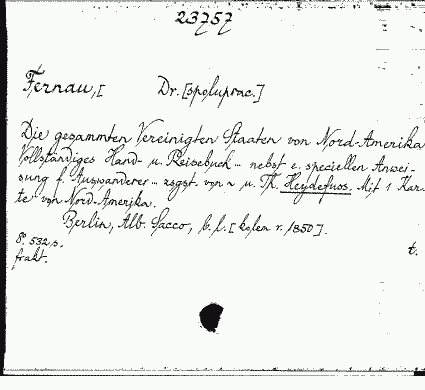 23757
Fernau, [ Dr. [spoluprac.]
Die gesammten Vereinigten Staaten von Nord-Amerika
Vollständiges Hand- u. Reisebuch... nebst e. speciellen Anwei-
sung f. Auswanderer... zsgst. von ~ u. Th. Heydefuss. Mit 1 Kar-
te von Nord-Amerika.
Berlin, Alb. Sacco, b. l. [kolem r. 1850].
8°. 532 s. t.
frakt.